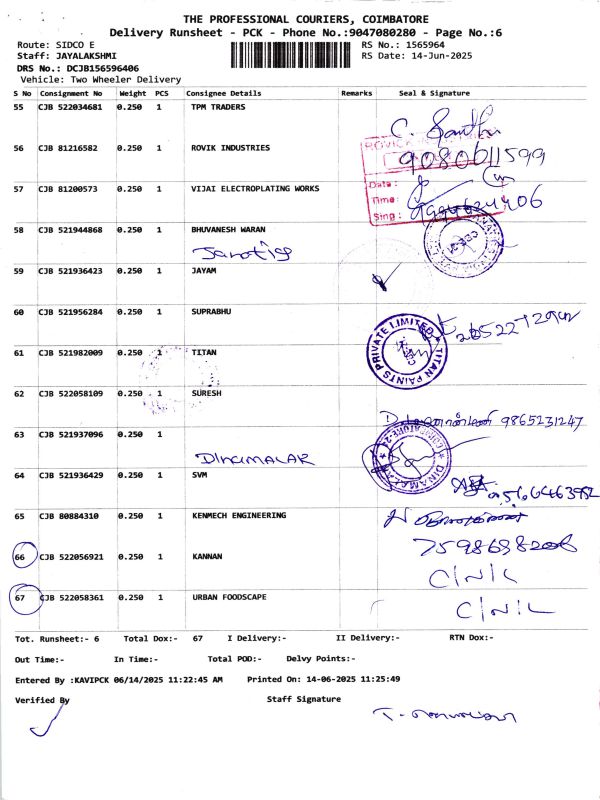 THE PROFESSIONAL COURIERS, COIMBATORE
Delivery Runsheet - PCK - Phone No.:9047080280 - Page No.:6
Route: SIDCO E RS No.: 1565964
Staff: JAYALAKSHMI RS Date: 14-Jun-2025
DRS No.: DCJB156596406
Vehicle: Two Wheeler Delivery
S No Consignment No Weight PCS Consignee Details Remarks Seal & Signature
55 CJB 522034681 0.250 1 TPM TRADERS
56 CJB 81216582 0.250 1 ROVIK INDUSTRIES
9080611599
57 CJB 81200573 0.250 1 VIJAI ELECTROPLATING WORKS
Date :
Time :
Sing :
58 CJB 521944868 0.250 1 BHUVANESH WARAN
59 CJB 521936423 0.250 1 JAYAM
60 CJB 521956284 0.250 1 SUPRABHU
61 CJB 521982009 0.250 1 TITAN
TITAN PAINTS PRIVATE LIMITED
62 CJB 522058109 0.250 1 SURESH
9865231247
63 CJB 521937096 0.250 1
DINAMALAR
64 CJB 521936429 0.250 1 SVM
65 CJB 80884310 0.250 1 KENMECH ENGINEERING
7598698206
66 CJB 522056921 0.250 1 KANNAN
C/N/L
67 CJB 522058361 0.250 1 URBAN FOODSCAPE
C/N/L
Tot. Runsheet:- 6 Total Dox:- 67 I Delivery:- II Delivery:- RTN Dox:-
Out Time:- In Time:- Total POD:- Delvy Points:-
Entered By :KAVIPCK 06/14/2025 11:22:45 AM Printed On: 14-06-2025 11:25:49
Verified By Staff Signature